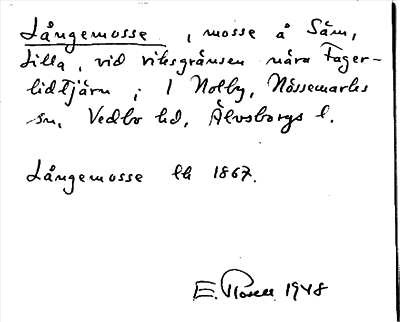 Långemosse, mosse å Säm,
Lilla, vid riksgränsen nära Fager-
lidtjärn; I Nolby, Nössemarks
sn, Vedbo hd, Älvsborgs l.
Långemosse lk 1867.
E. Rosell 1948